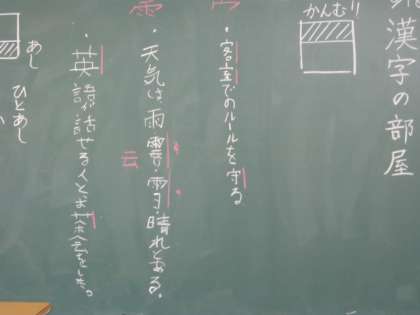 漢字の部屋
かんむり
・客室でのルールを守る
・天気は、雨雲・雪・晴れとある。
云
・英語で話せる人とお茶会をした。
あし
ひとあし